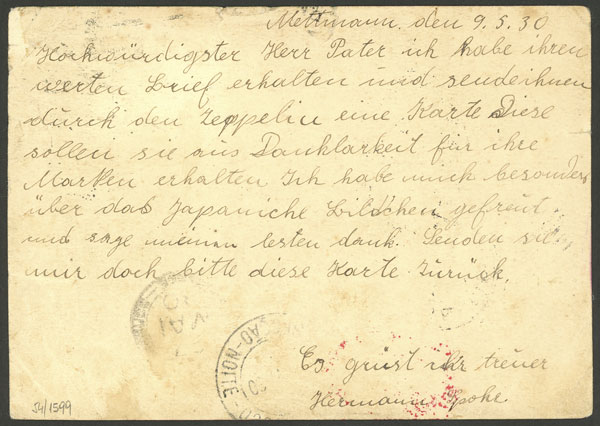 Mettmann. den 9.5.30
Hochwürdigster Herr Pater ich habe ihren
werten Brief erhalten und sende ihnen
durch den Zeppelin eine Karte Diese
sollen sie aus Danklarkeit für ihre
Marken erhalten Ich habe mich besonders
über das Japaniche Bildchen gefreut.
und sage meinen besten dank. Senden sie
mir doch bitte diese Karte Zurück.
Es grüst ihr treuer
Hermann Spohr
MAI
ÃO-NOITE
J4/1599